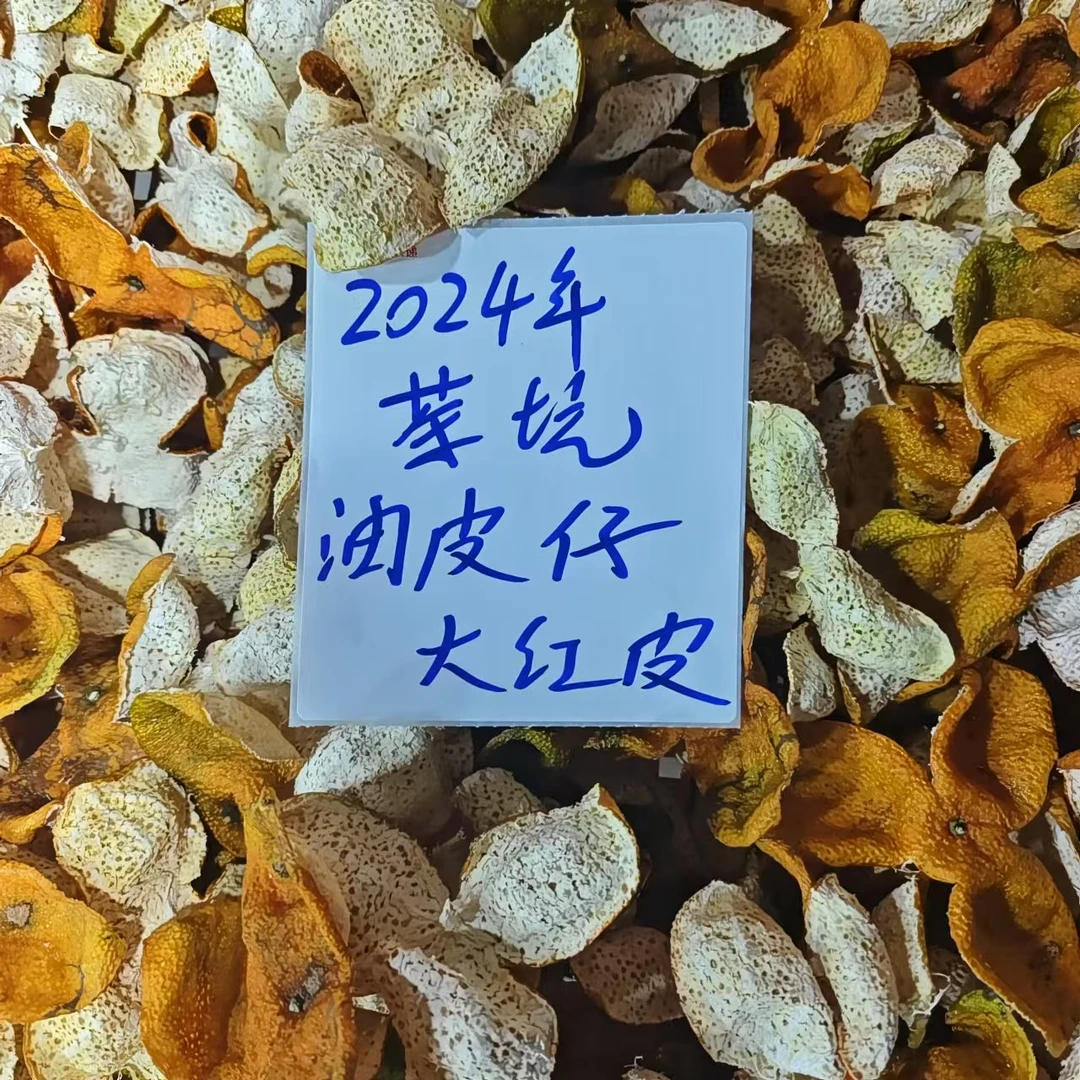 2024年
菜坑
油皮仔
大红皮